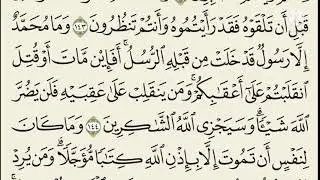 قَبْلِ أَن تَلْقَوْهُ فَقَدْ رَأَيْتُمُوهُ وَأَنتُمْ تَنظُرُونَ ١٤٣ وَمَا مُحَمَّدٌ
إِلَّا رَسُولٌ قَدْ خَلَتْ مِن قَبْلِهِ ٱلرُّسُلُ أَفَإِيْن مَّاتَ أَوْ قُتِلَ
ٱنقَلَبْتُمْ عَلَىٰ أَعْقَٰبِكُمْ وَمَن يَنقَلِبْ عَلَىٰ عَقِبَيْهِ فَلَن يَضُرَّ
ٱللَّهَ شَيْـًٔا وَسَيَجْزِى ٱللَّهُ ٱلشَّٰكِرِينَ ١٤٤ وَمَا كَانَ
لِنَفْسٍ أَن تَمُوتَ إِلَّا بِإِذْنِ ٱللَّهِ كِتَٰبًا مُّؤَجَّلًا وَمَن يُرِدْ